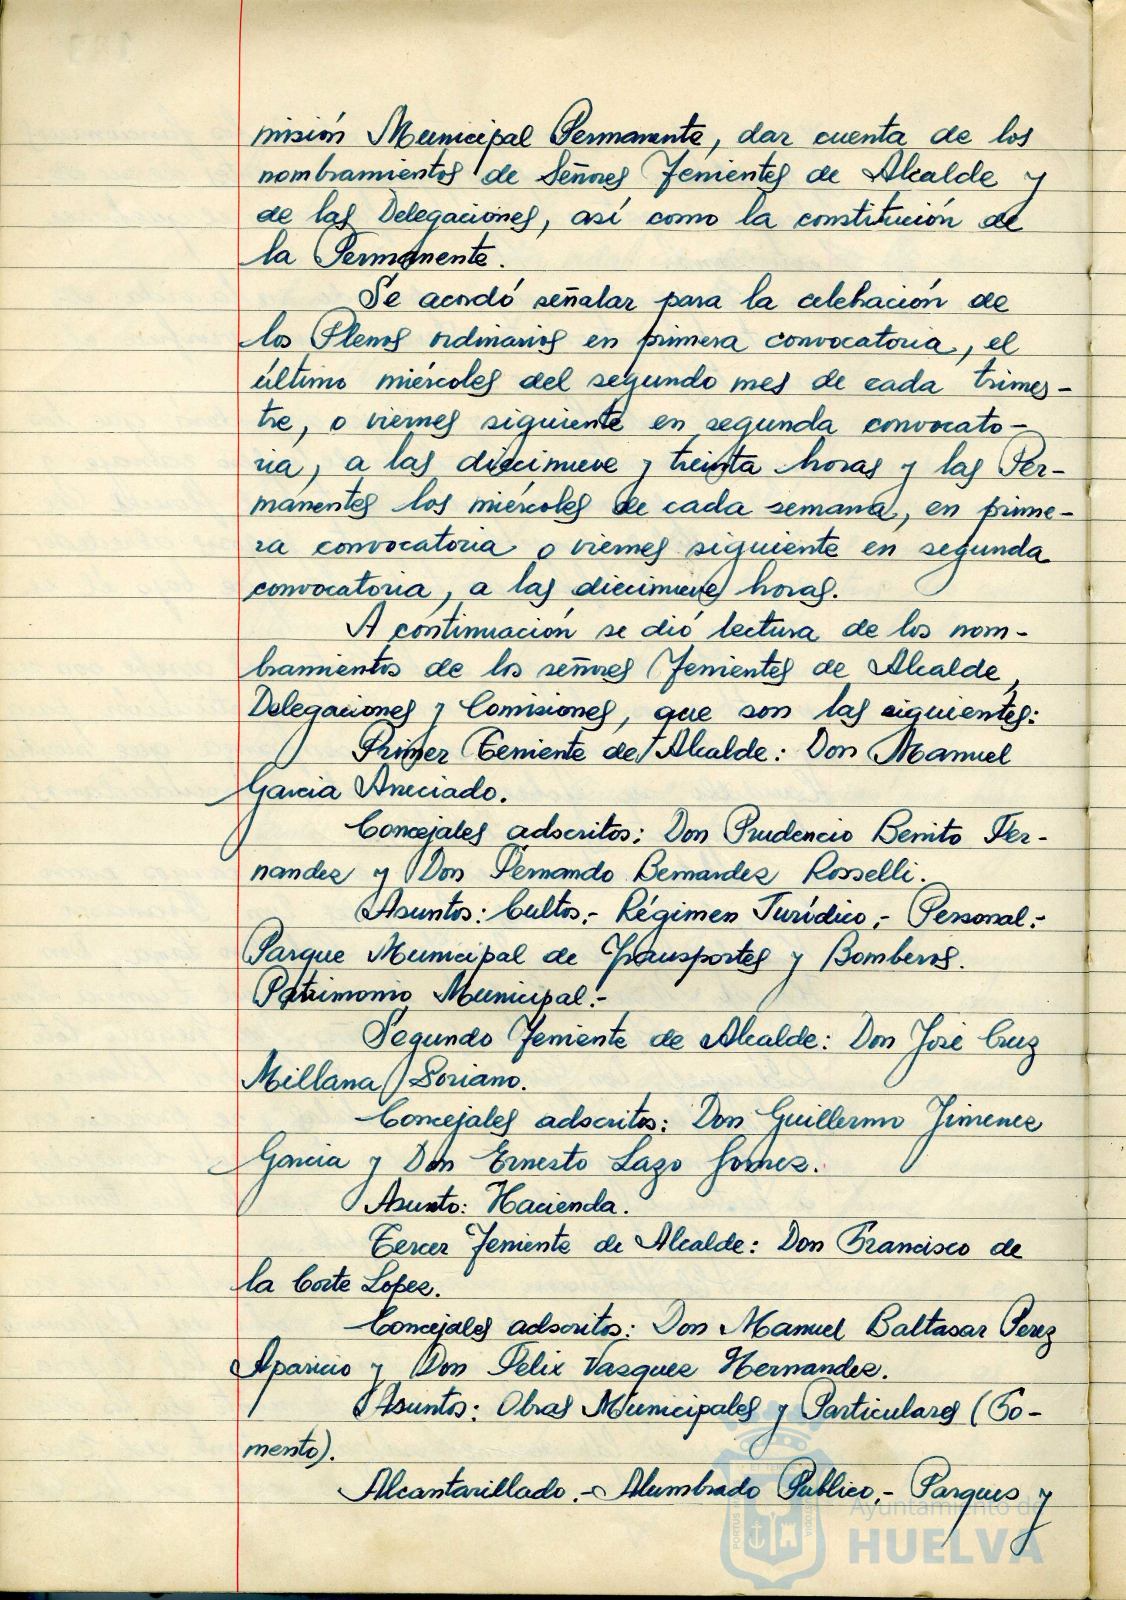 misión Municipal Permanente, dar cuenta de los
nombramientos de Señores Tenientes de Alcalde y
de las Delegaciones, así como la constitución de
la Permanente.
Se acordó señalar para la celebración de
los Plenos ordinarios en primera convocatoria, el
último miércoles del segundo mes de cada trimes-
tre, o viernes siguiente en segunda convocato-
ria, a las diecinueve y treinta horas y las Per-
manentes los miércoles de cada semana, en prime-
ra convocatoria o viernes siguiente en segunda
convocatoria, a las diecinueve horas.
A continuación se dió lectura de los nom-
bramientos de los señores Tenientes de Alcalde,
Delegaciones y Comisiones, que son las siguientes:
Primer Teniente de Alcalde: Don Manuel
Garcia Aneciado.
Concejales adscritos: Don Prudencio Benito Fer-
nandez y Don Fernando Bernardez Rosselli.
Asuntos: Cultos.- Régimen Jurídico.- Personal.-
Parque Municipal de Transportes y Bomberos.
Patrimonio Municipal.-
Segundo Teniente de Alcalde: Don José Cruz
Millana Soriano.
Concejales adscritos: Don Guillermo Jimenez
Garcia y Don Ernesto Lazo Gomez.
Asunto: Hacienda.
Tercer Teniente de Alcalde: Don Francisco de
la Corte Lopez.
Concejales adscritos: Don Manuel Baltasar Perez
Aparicio y Don Felix Vazquez Hernandez.
Asuntos: Obras Municipales y Particulares (Fo-
mento).
Alcantarillado.- Alumbrado Publico.- Parques y
Ayuntamiento de
HUELVA